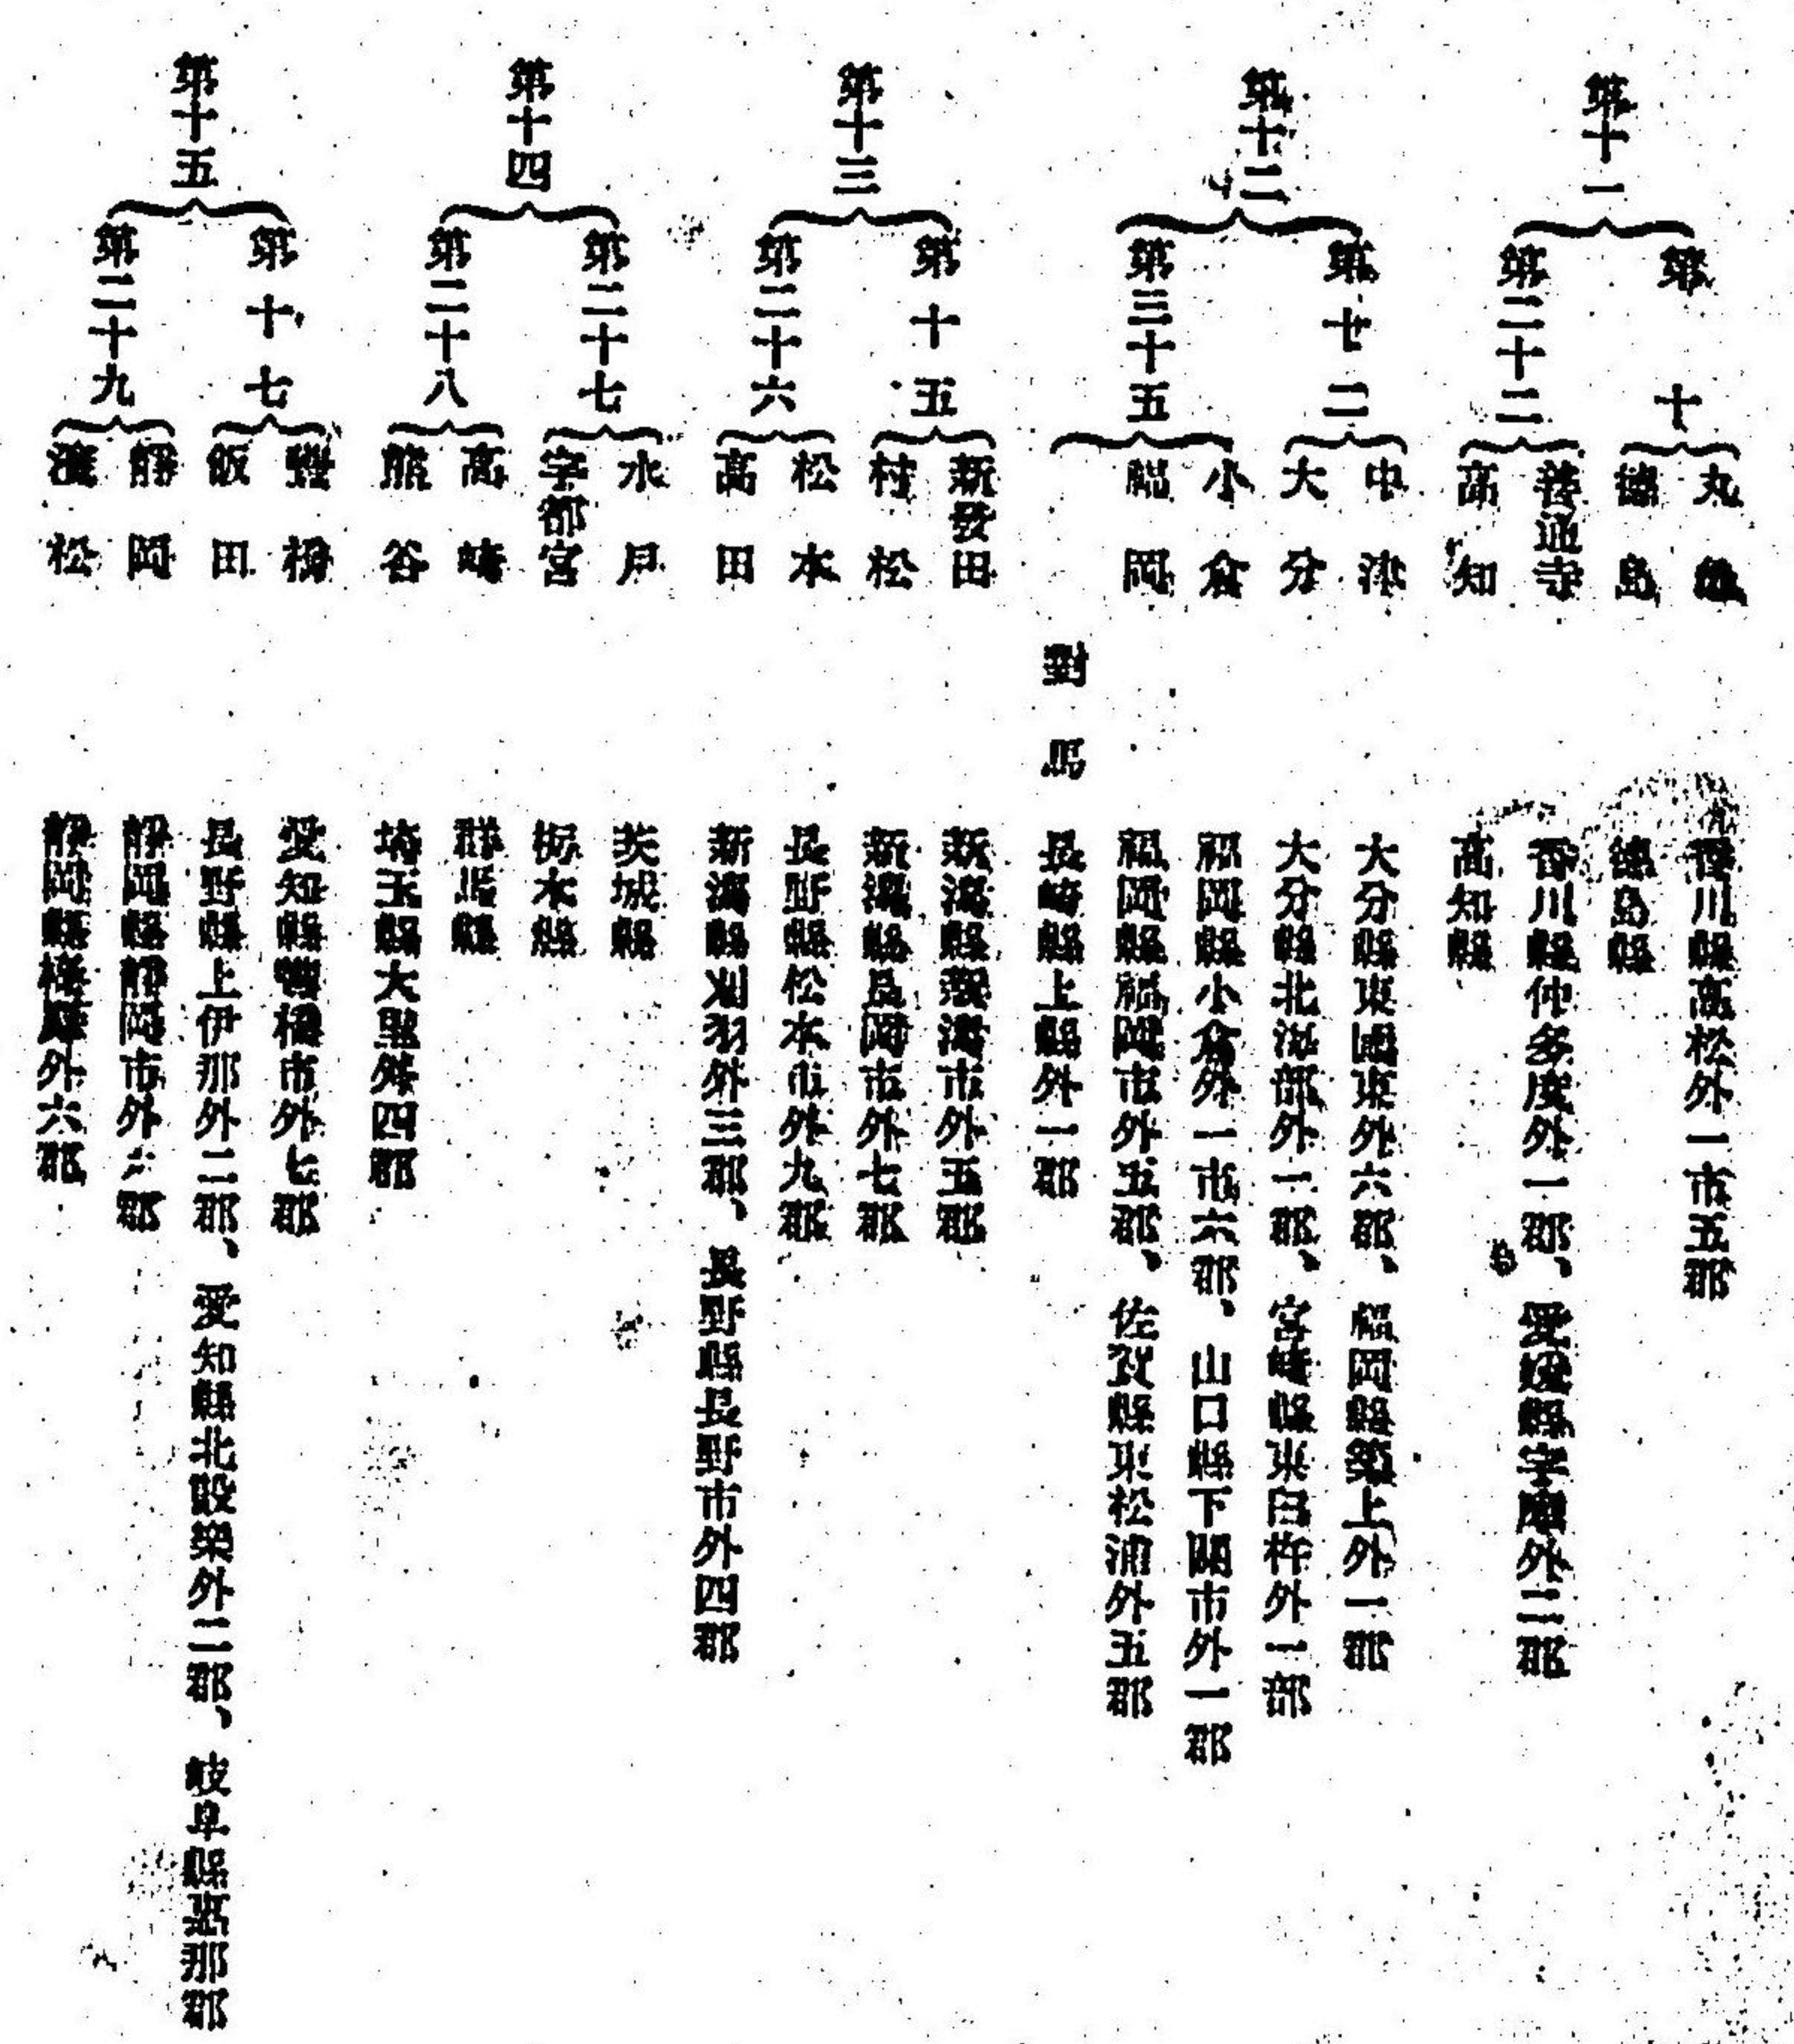 第十一
第十
丸龜 香川縣高松外一市五郡
德島 德島縣
第二十二
善通寺 香川縣仲多度外一郡、愛媛縣宇摩外二郡
高知 高知縣
第十二
第十二
中津 大分縣東國東外六郡、福岡縣築上外一郡
大分 大分縣北海部外一郡、宮崎縣東臼杵外一部
第三十五
小倉 福岡縣小倉外一市六郡、山口縣下關市外一郡
福岡 福岡縣福岡市外五郡、佐賀縣東松浦外五郡
對馬 長崎縣上縣外一郡
第十三
第十五
新發田 新潟縣新潟市外五郡
村松 新潟縣長岡市外七郡
第二十六
松本 長野縣松本市外九郡
高田 新潟縣刈羽外三郡、長野縣長野市外四郡
第十四
第二十七
水戶 茨城縣
宇都宮 栃木縣
第二十八
高崎 群馬縣
熊谷 埼玉縣大里外四郡
第十五
第十七
豐橋 愛知縣豐橋市外七郡
飯田 長野縣上伊那外二郡、愛知縣北設樂外二郡、岐阜縣惠那郡
第二十九
靜岡 靜岡縣靜岡市外 郡
濱松 靜岡縣榛原外六郡